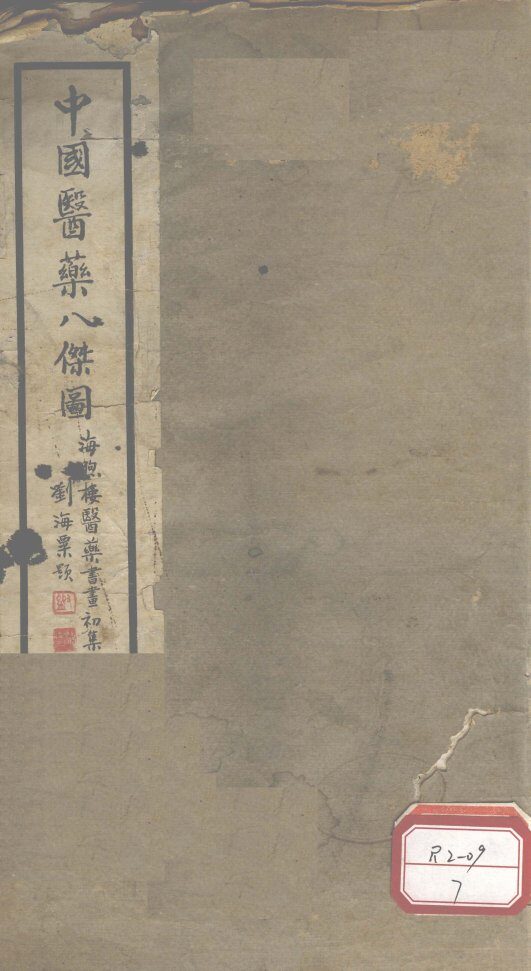 中國醫藥八傑圖
海煦樓醫藥書畫初集
劉海粟題
R2-09
7